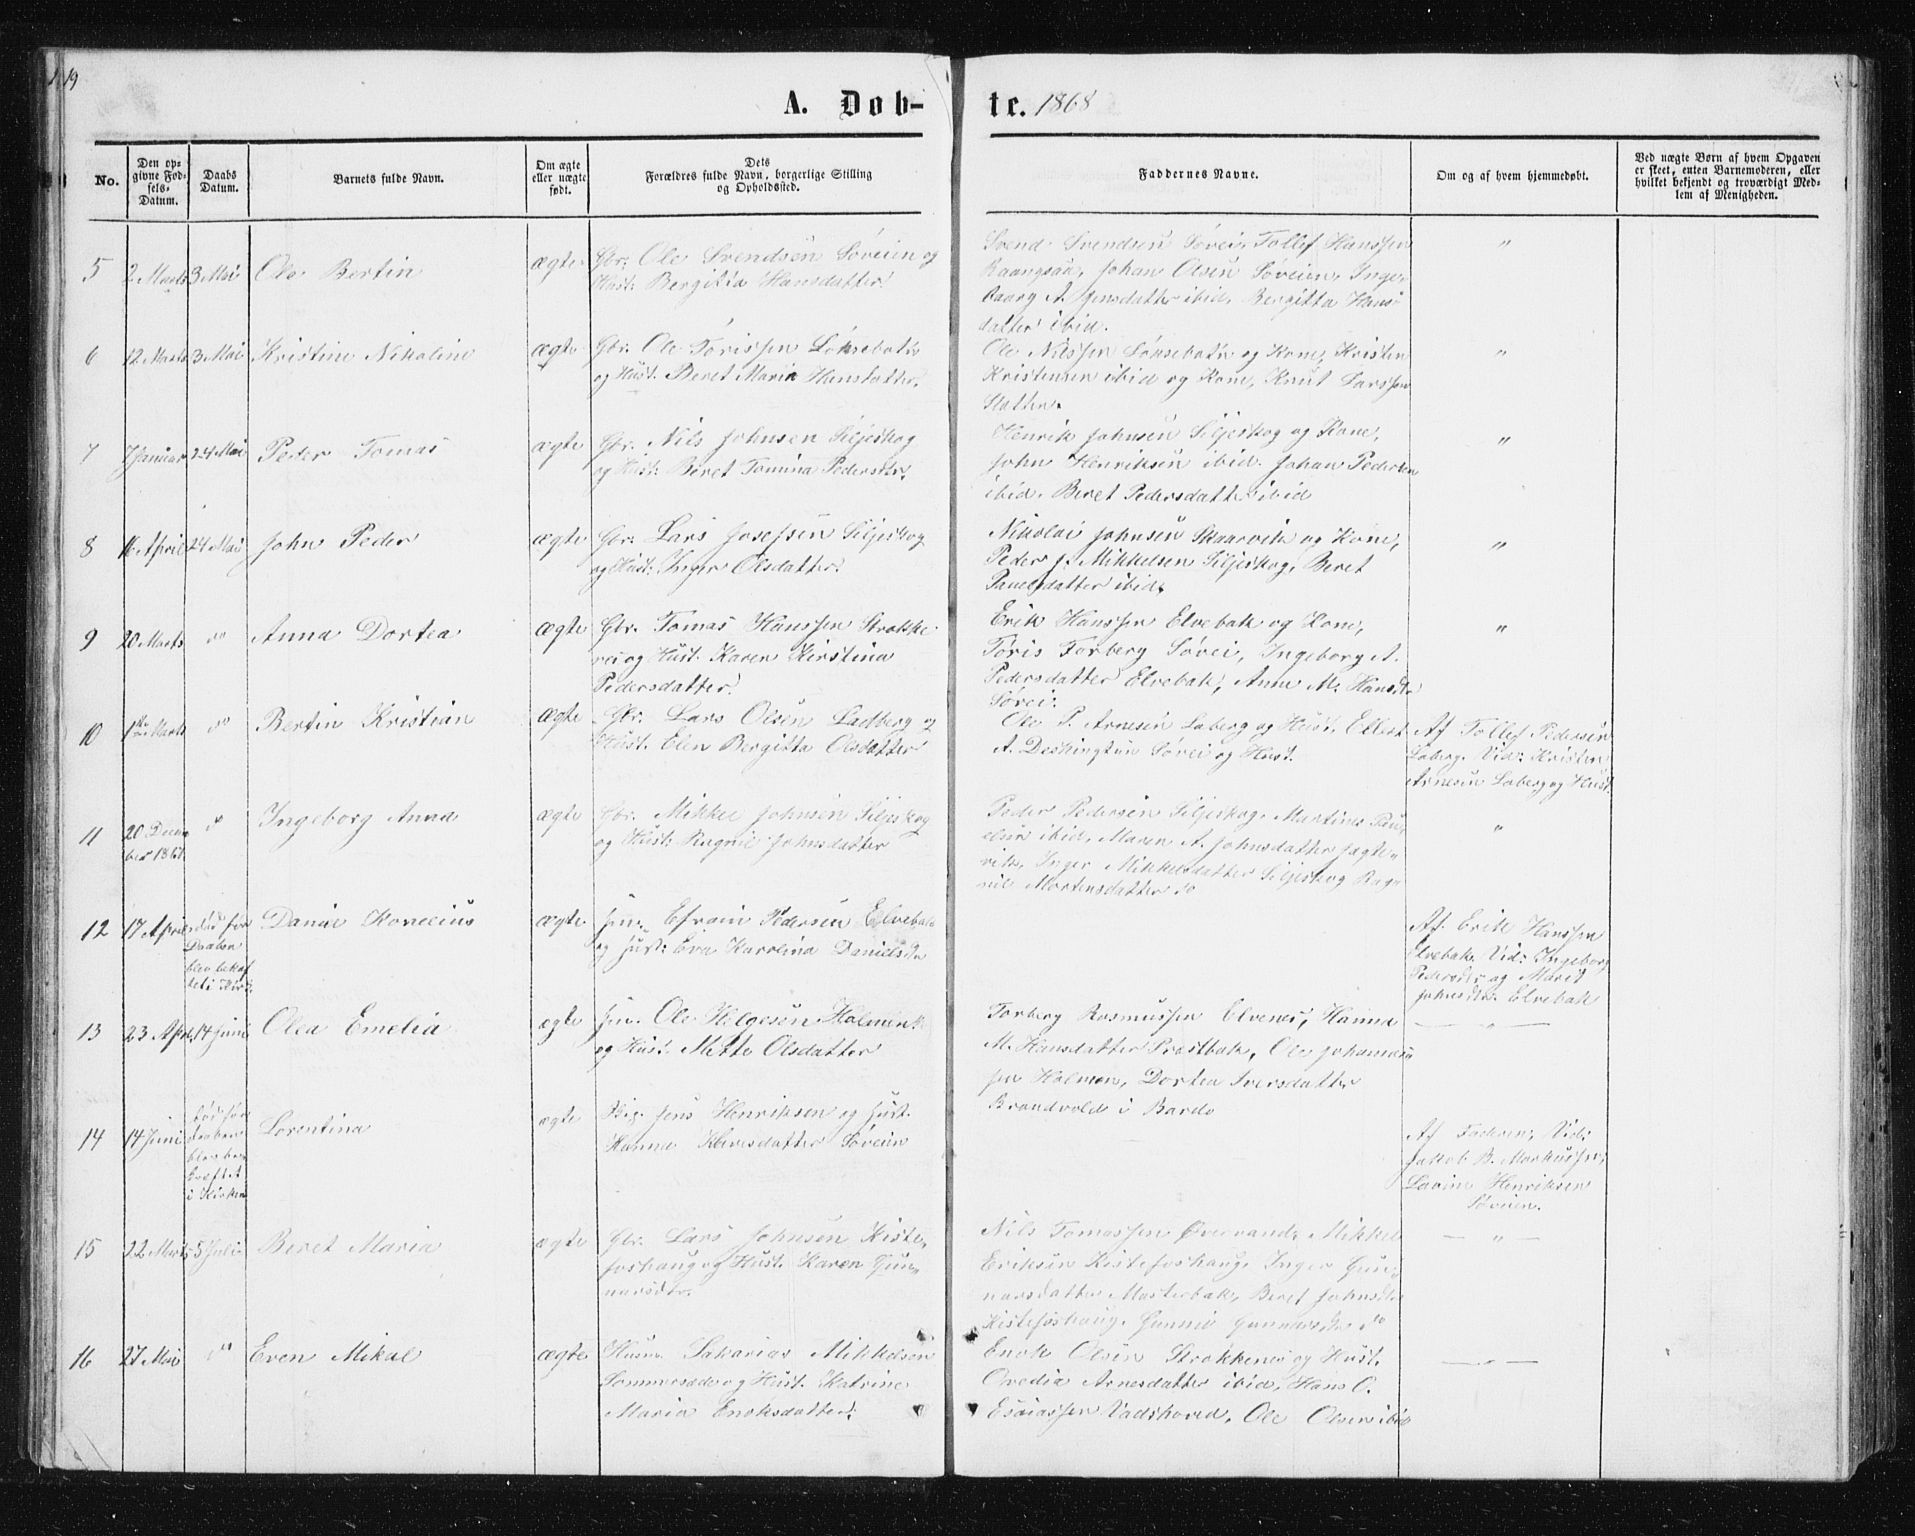 19
A. Døb-
te. 1868
No.
Den op-
givne Fød-
sels-
Datum.
Daabs
Datum.
Barnets fulde Navn.
Om ægte
eller uægte
født.
Dets
Forældres fulde Navn, borgerlige Stilling
og Opholdssted.
Faddernes Navne.
Om og af hvem hjemmedøbt.
Ved uægte Børn af hvem Opgaven
er skeet, enten Barnemoderen, eller
hvilket bekjendt og troværdigt Med-
lem af Menigheden.
5 2 Marts 3 Mai Ole Bertin ægte Gbr. Ole Svendsen Søveien og
Hust. Bergitta Hansdatter.
Svend Svendsen Søvei, Tollef Hanssen
Johan Olsen Søveien, Inge-
baarg A. Jensdatter ibid, Bergitta Hans-
datter ibid.
"
6 12 Marts 3 Mai Kristine Nikoline ægte Gbr. Ole Tørissen Lønsebotn
og Hust. Beret Maria Hansdatter.
Ole Nilssen Lønsebotn og Kone, Kristen
Kristensen ibid og Kone, Knut Larssen
Slotten.
"
7 7 Januar 24 Mai Peder Tomas ægte Gbr. Nils Johnsen Siljeskog
og Hust. Beret Tomina Pedersdtr.
Henrik Johnsen Siljeskog og Kone,
John Henriksen ibid. Johan Pedersen
ibid. Beret Pedersdatter ibid
"
8 16 April 24 Mai John Peder ægte Gbr. Lars Josefsen Siljeskog
og Hust. Inger Olsdatter.
Nikolai Johnsen Skaarvik og Kone,
Peder J. Mikkelsen Siljeskog, Beret
Paulsdatter ibid.
"
9 20 Marts do Anna Dortea ægte Gbr. Tomas Hanssen Strokke-
nes og Hust. Karen Kirstina
Pedersdatter.
Erik Hanssen Elvebak og Kone,
Tøris Torberg Søvei, Ingeborg A.
Pedersdatter Elvebak, Anne M. Hansdtr
Søvei.
"
10 1ste Marts do Bertin Kristian ægte Gbr. Lars Olsen Ladberg og
Hust. Elen Bergitta Olsdatter
Ole P. Arnesen Laberg og Hust. Ellert
A. Deskington Søvei og Hust.
Af Tollef Pedersen
Laberg. Vid: Kristen
Arnesen Laberg og Hust.
11 20 Decem
ber 1867. do Ingeborg Anna ægte Gbr. Mikkel Johnsen Siljeskog
og Hust. Ragnil Johnsdatter
Peder Pedersen Siljeskog, Martines Pau-
elsen ibid, Maren A. Johnsdatter Jægte-
vik, Inger Mikkelsdatter Siljeskog Rag-
nil Mortensdatter do
"
12 17 April død før
Daaben
blev bekræf
tet i Kirk. Daniel Kornelius ægte Jn. Efraim Pedersen Elvebak
og Hust. Eva Karolina Danielsdtr
Af Erik Hanssen
Elvebak. Vid: Ingeborg
Pedersdtr og Marit
Johnsdtr. Elvebak
13 23 April 14 Juni Olea Emelia ægte Jn. Ole Helgesen Holmen
og Hust. Mette Olsdatter
Torberg Rasmussen Elvenes, Hanna
M. Hansdatter Prestbak, Ole Johannes-
sen Holmen, Dortea Iversdatter
Brandvold i Bardo
— " —
14 14 Juni død før
daaben
blev be-
kræftet
i Kirken Lorentina ægte Jens Henriksen og Hust.
Hanna Søveien
Af Faderen, Vid:
Jakob B. Markussen,
Lavine Henriksen
Søveien.
15 22 Marts 5 Juli Beret Maria ægte Gbr. Lars Johnsen Kiste-
foshaug og Hust. Karen Gun-
narsdtr.
Nils Tomassen Øvervand, Mikkel
Eriksen Kistefoshaug, Inger Gun-
narsdatter Mosterbak, Beret Johnsdtr
Kistefoshaug. Gunnil Gunnarsdtr do
— " —
16 27 Mai do Even Mikal ægte Husm. Sakarias Mikkelsen
Sommersæde og Hust. Katrine
Maria Enoksdatter.
Enok Olsen Strokkenes og Hust.
Ovedia Arnesdatter ibid, Hans O.
Esaiassen Vadshoved, Ole Olsen ibid
— " —